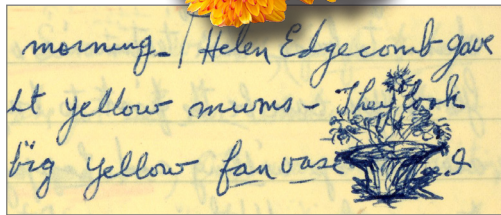 morning - / Helen Edgecomb gave
it yellow mums - They look
big yellow fan vase I